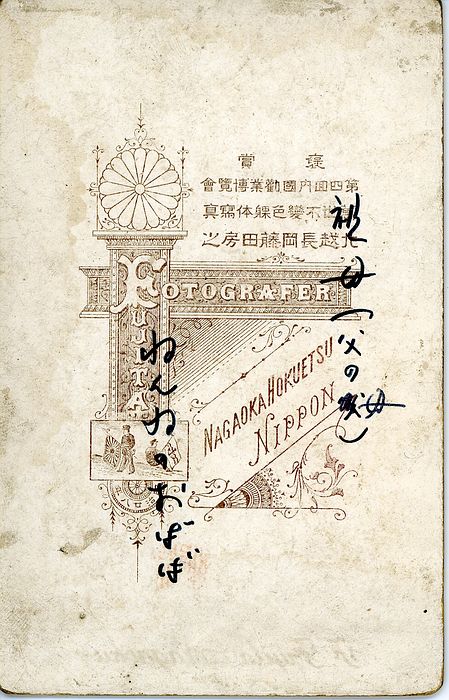 褒賞
第四回内國勸業博覽會
不變色 体寫真
北越長岡藤田房之
FOTOGRAFER
FUJITA
NAGAOKA HOKUETSU
NIPPON
祖母(父の 母)
のおばば